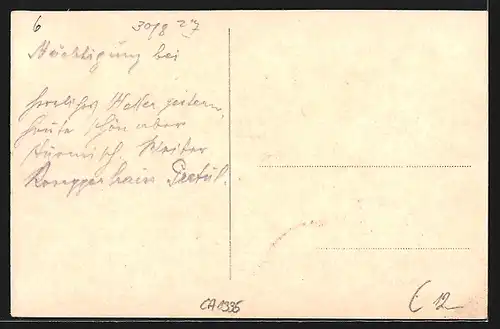 6
30/8 27
Nächtigung bei
herrliches Wetter gestern,
heute schön aber
stürmisch. Weiter
CA1335
C 12